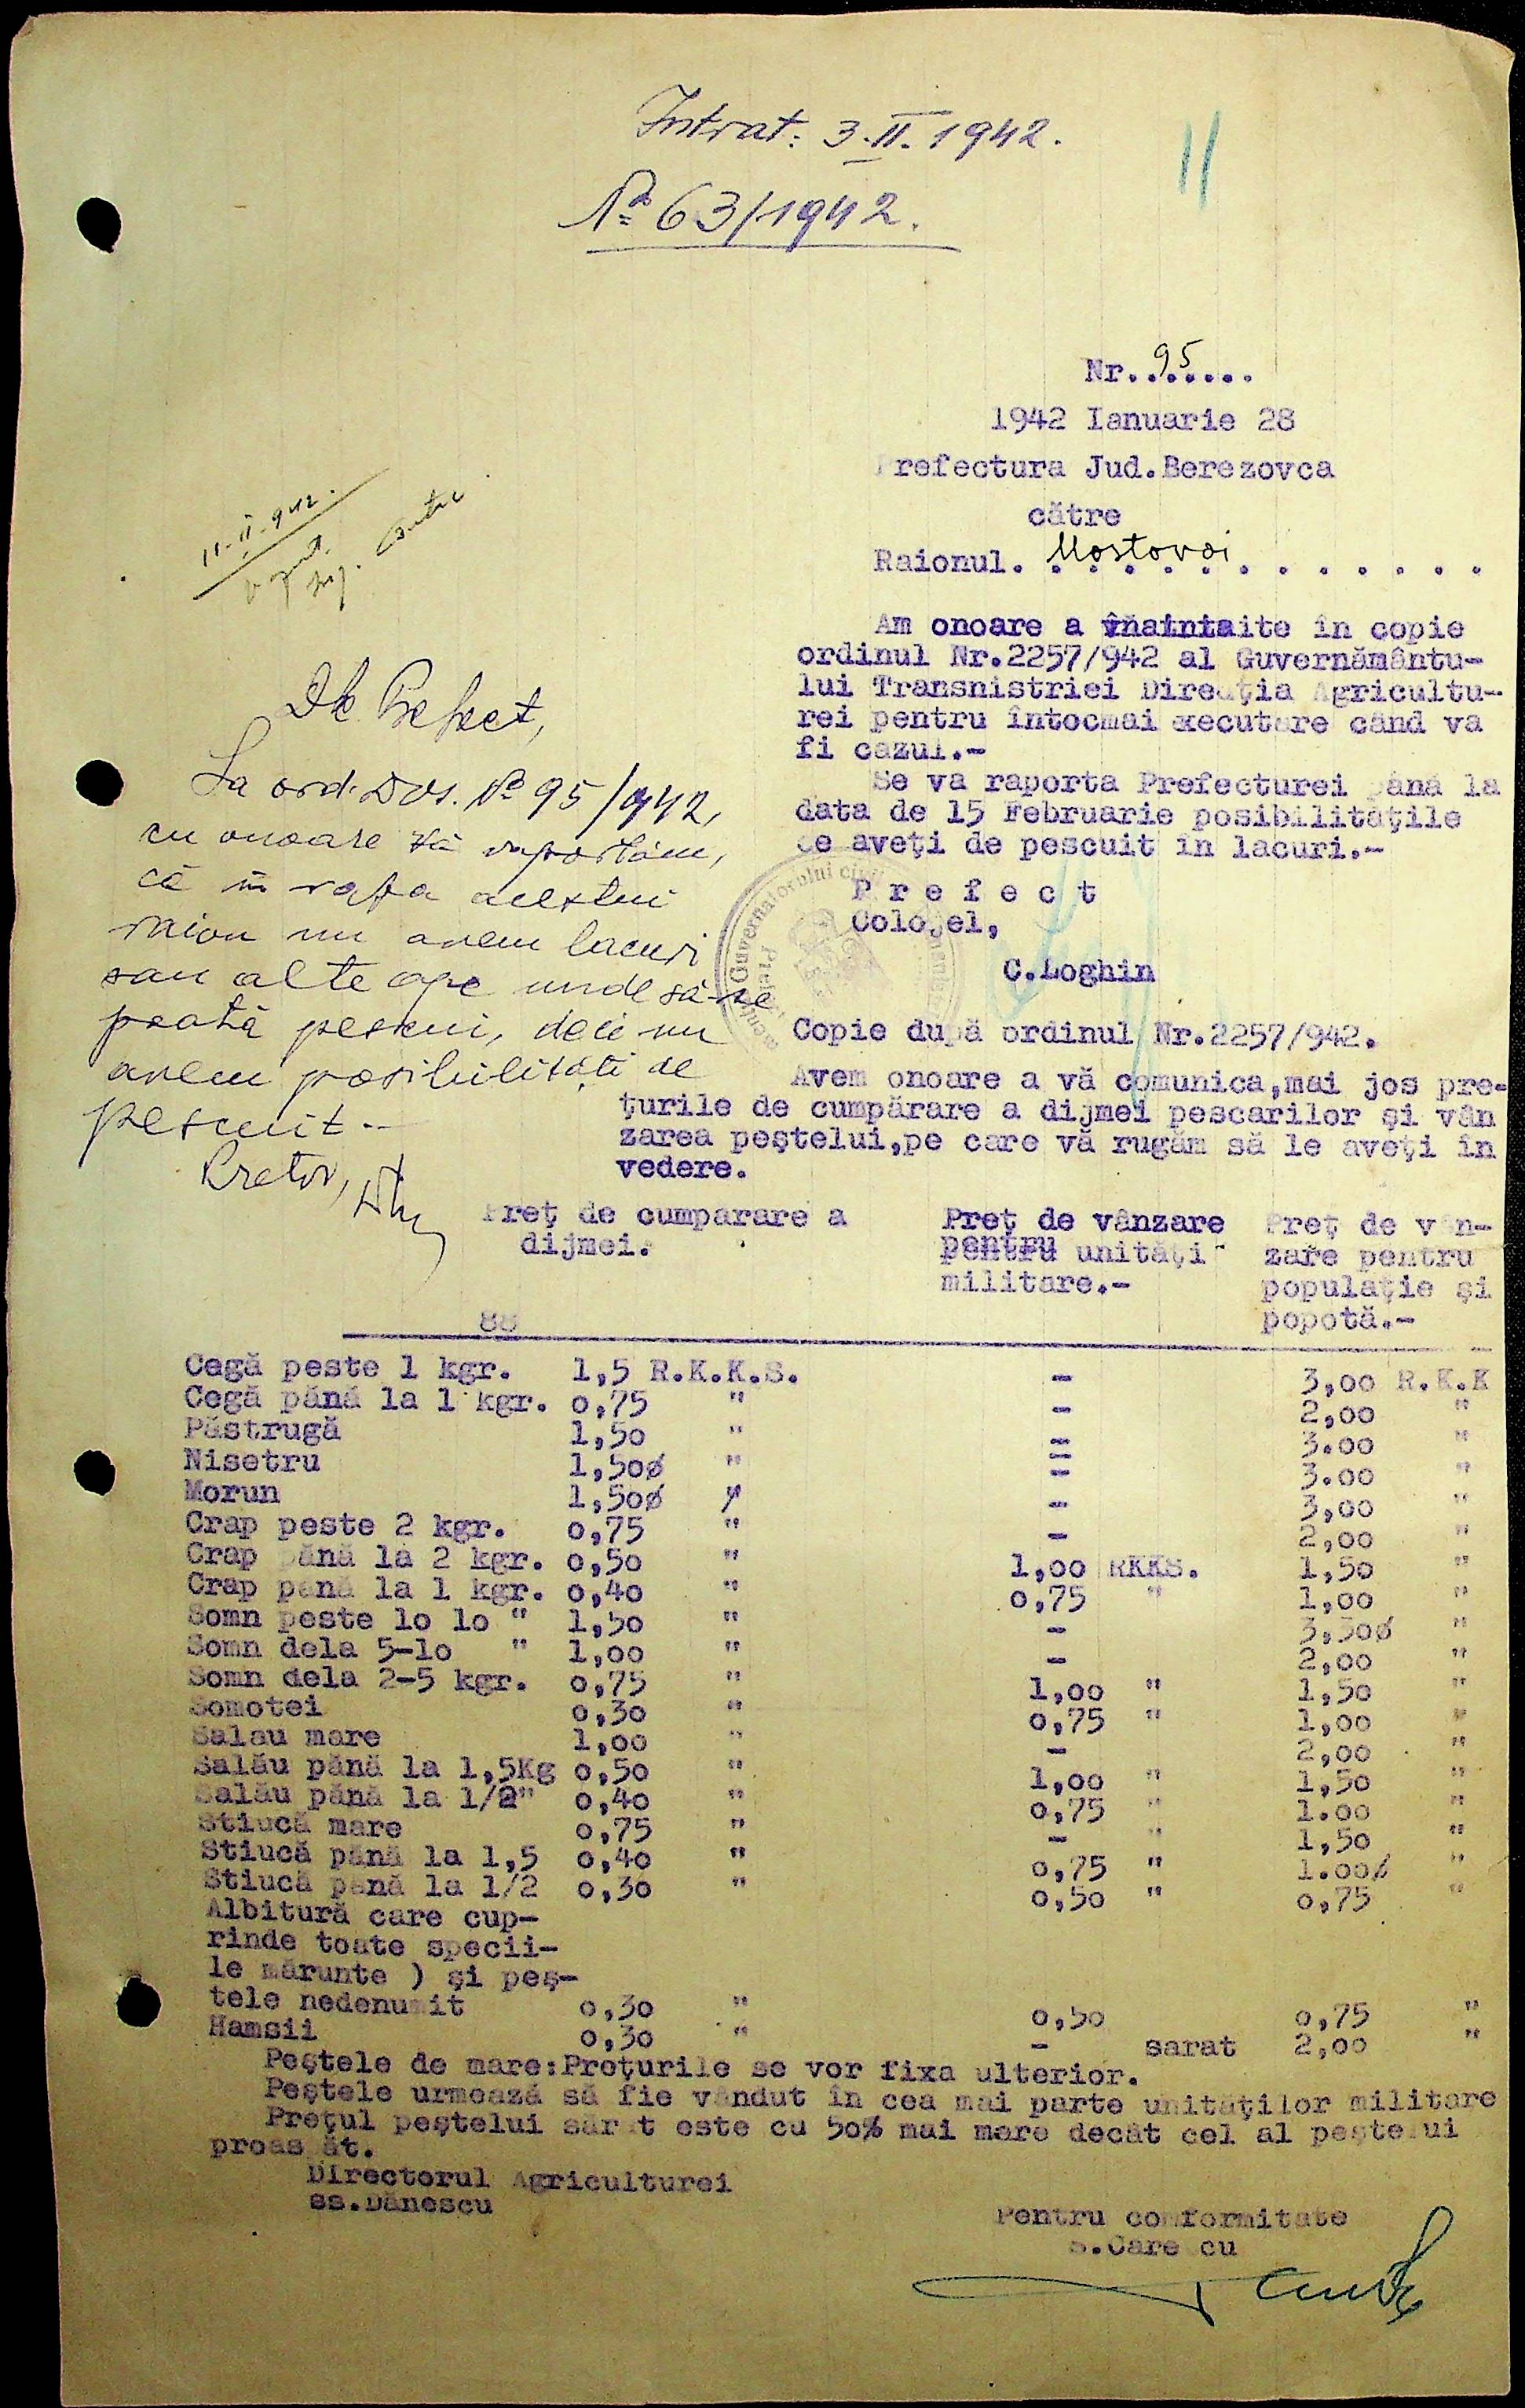 Intrat: 3.II.1942.
11
№ 63/1942.
Nr. 95......
1942 Ianuarie 28
Prefectura Jud.Berezovca
către
Raionul. Mostovoi
11-II-942.
Am onoare a înaintaite în copie
ordinul Nr.2257/942 al Guvernământu-
lui Transnistriei Direcţia Agricultu-
rei pentru întocmai executare când va
fi cazul.-
Se va raporta Prefecturei până la
data de 15 Februarie posibilităţile
ce aveţi de pescuit în lacuri.-
P r e f e c t
Colonel,
C.Loghin
Dle Prefect,
La ord. Dvs. № 95/942,
cu onoare vă raportăm,
că în raza acestui
raion nu avem lacuri
sau alte ape unde să se
poată pescui, deci nu
avem posibilităţi de
pescuit.-
Pretor,
Copie după ordinul Nr.2257/942.
Avem onoare a vă comunica,mai jos pre-
ţurile de cumpărare a dijmei pescarilor şi vân
zarea peştelui,pe care vă rugăm să le aveţi în
vedere.
Preţ de cumparare a dijmei. Preţ de vânzare pentru unităţi militare.- Preţ de vân-zare pentru populaţie şi popotă.-
88
Cegă peste 1 kgr. 1,5 R.K.K.S. - 3,00 R.K.K
Cegă până la 1 kgr. 0,75 " - 2,00 "
Păstrugă 1,50 " - 3.00 "
Nisetru 1,50ø " - 3.00 "
Morun 1,50ø " - 3,00 "
Crap peste 2 kgr. 0,75 " - 2,00 "
Crap până la 2 kgr. 0,50 " 1,00 RKKS. 1,50 "
Crap până la 1 kgr. 0,40 " 0,75 " 1,00 "
Somn peste lo lo " 1,50 " - 3,50ø "
Somn dela 5-lo " 1,00 " - 2,00 "
Somn dela 2-5 kgr. 0,75 " 1,00 " 1,50 "
Somotei 0,30 " 0,75 " 1,00 "
Salau mare 1,00 " - 2,00 "
Salău până la 1,5Kg 0,50 " 1,00 " 1,50 "
Salău până la 1/2" 0,40 " 0,75 " 1.00 "
Stiucă mare 0,75 " - " 1,50 "
Stiucă până la 1,5 0,40 " 0,75 " 1.00ø "
Stiucă până la 1/2 0,30 " 0,50 " 0,75 "
Albitură care cup-
rinde toate specii-
le mărunte ) şi peş-
tele nedenumit 0,30 " 0,50 0,75 "
Hamsii 0,30 " - sarat 2,00 "
Peştele de mare:Preţurile se vor fixa ulterior.
Peştele urmează să fie vândut în cea mai parte unităţilor militare
Preţul peştelui sărat este cu 50% mai mare decât cel al peştelui
proaspăt.
Directorul Agriculturei
ss.Dănescu
Pentru conformitate